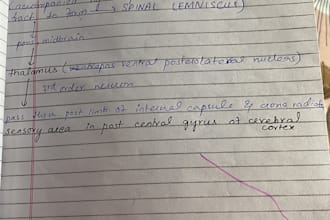 accompanied
tract to form } → SPINAL LEMNISCUS)
pons midbrain
thalamus ( ventral posterolateral nucleus)
3rd order neuron
pass post limb of internal capsule & corona radiata
sensory area in post central gyrus of cerebral
cortex